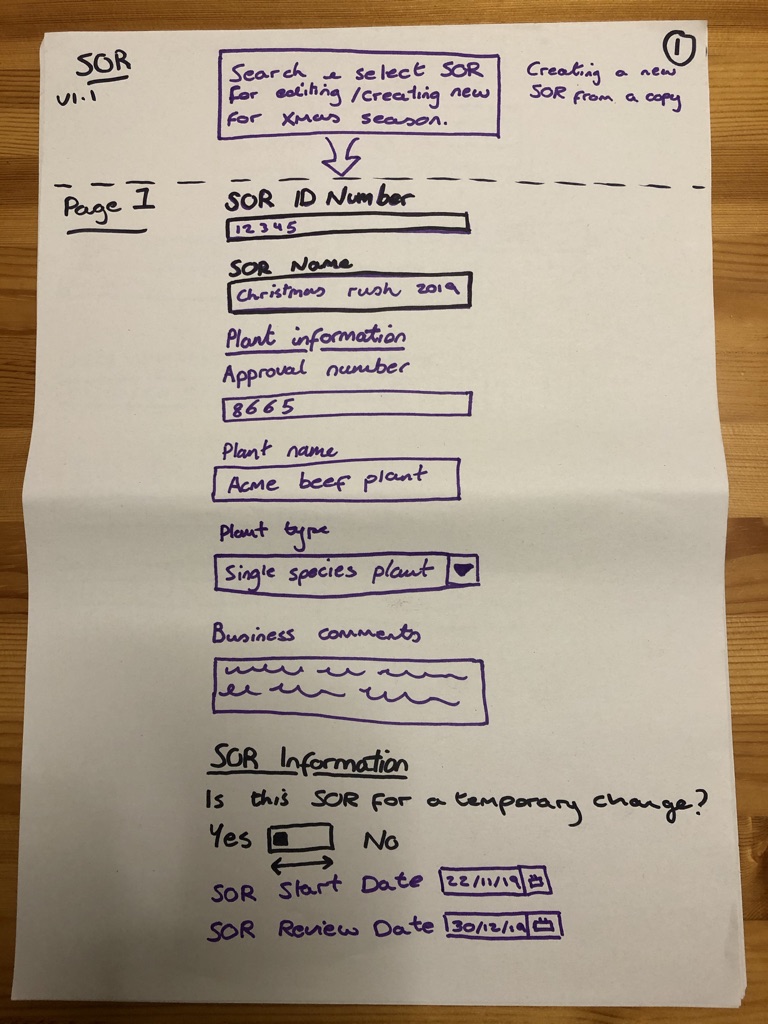 SOR
V1.1
Search & select SOR
for editing/creating new
for Xmas season.
Creating a new
SOR from a copy
1
Page 1
SOR ID Number
12345
SOR Name
Christmas rush 2019
Plant information
Approval number
8665
Plant name
Acme beef plant
Plant type
Single species plant
Business comments
SOR Information
Is this SOR for a temporary change?
Yes No
SOR Start Date 22/11/19
SOR Review Date 30/12/19